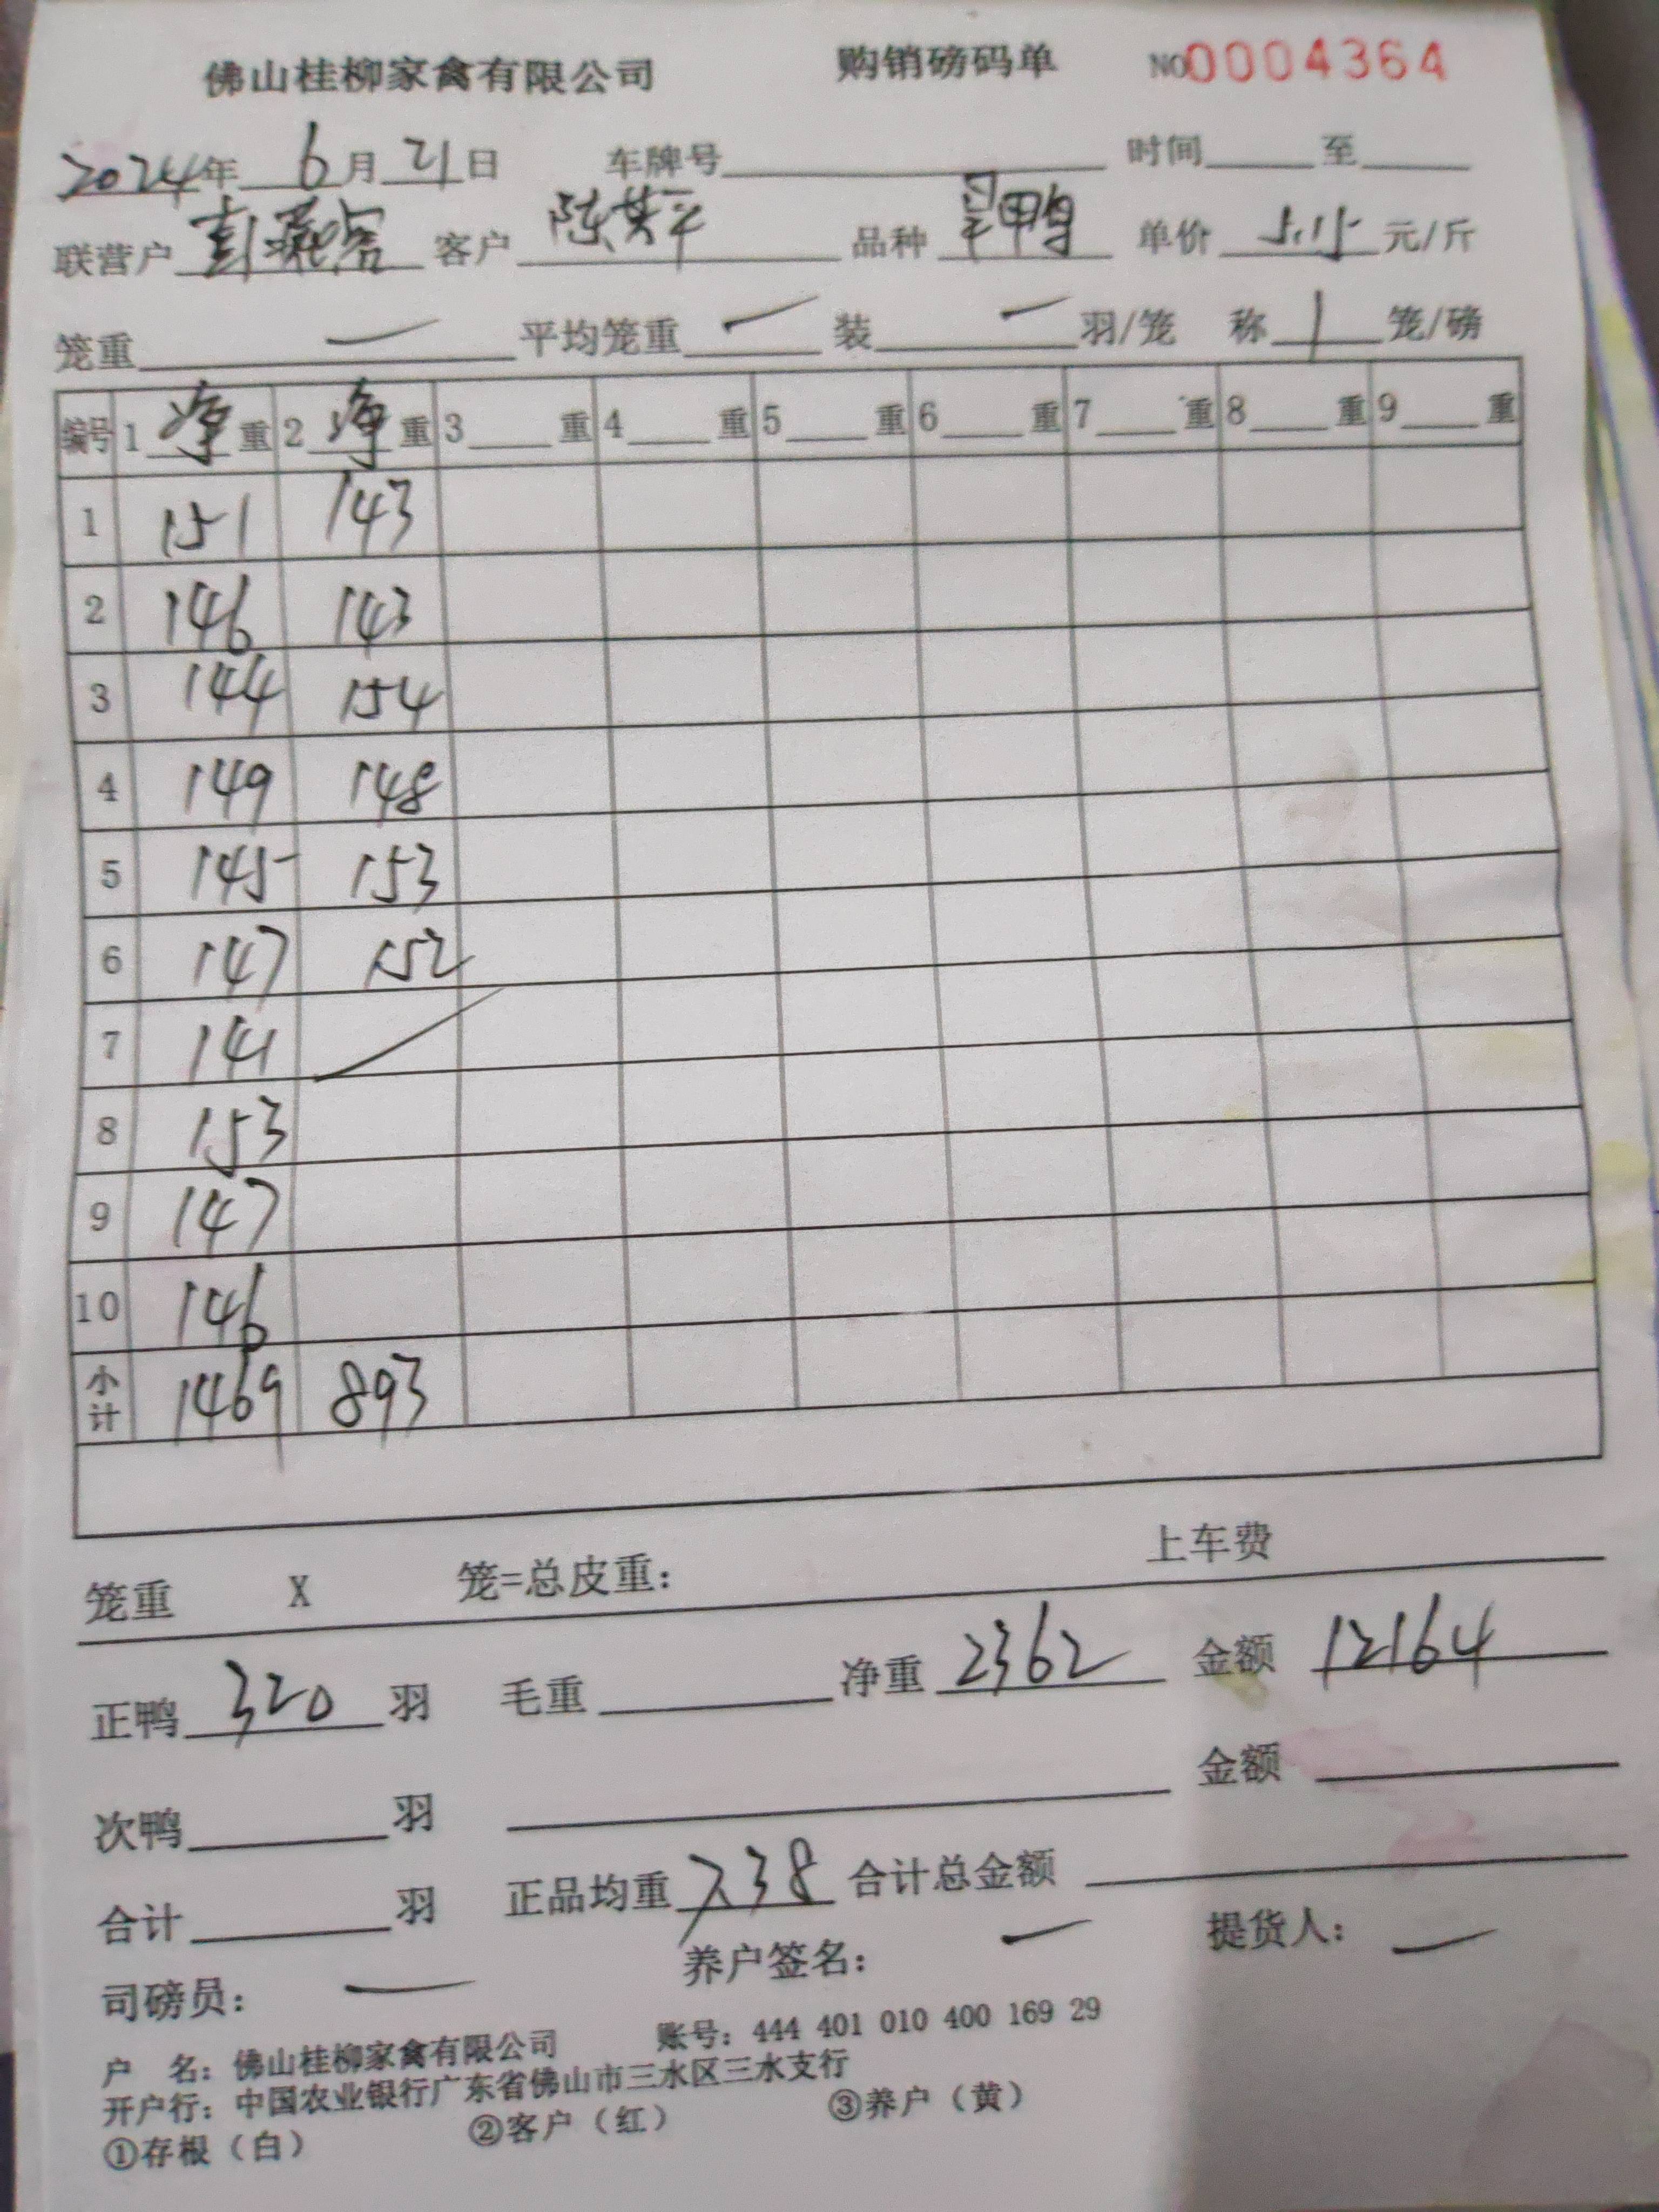 佛山桂柳家禽有限公司 购销磅码单 NO0004364
2024年 6月 21日 车牌号 时间 至
联营户 彭 客户 陈英平 品种 鸭 单价 5.15 元/斤
笼重 — 平均笼重 — 装 — 羽/笼 称 1 笼/磅
编号 1 净 重 2 净 重 3 重 4 重 5 重 6 重 7 重 8 重 9 重
1 151 143
2 146 143
3 144 154
4 149 148
5 145 153
6 147 152
7 141
8 153
9 147
10 146
小计 1469 893
笼重 X 笼=总皮重: 上车费
正鸭 320 羽 毛重 净重 2362 金额 12164
次鸭 羽 金额
合计 羽 正品均重 7.38 合计总金额
司磅员: — 养户签名: — 提货人: —
户 名: 佛山桂柳家禽有限公司 账号: 444 401 010 400 169 29
开户行: 中国农业银行广东省佛山市三水区三水支行
①存根（白） ②客户（红） ③养户（黄）